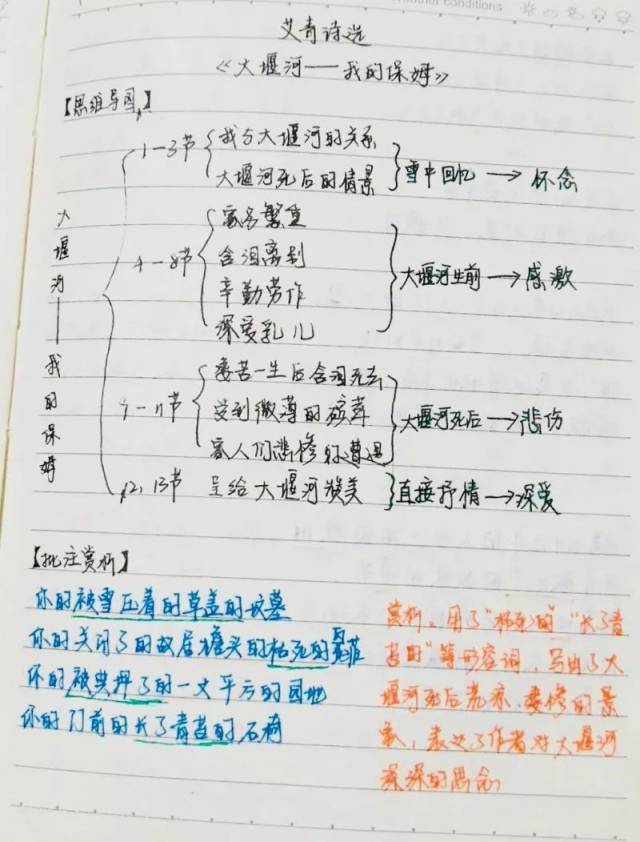 conditions
艾青诗选
《大堰河——我的保姆》
【思维导图】
大堰河——我的保姆
1-3节
我与大堰河的关系
大堰河死后的情景
雪中回忆→怀念
4-8节
家务繁重
含泪离别
辛勤劳作
深爱乳儿
大堰河生前→感激
9-11节
凄苦一生后含泪死去
受到微薄的殡葬
家人们悲惨的遭遇
大堰河死后→悲伤
12,13节 呈给大堰河赞美}直接抒情→深爱
【批注赏析】
你的被雪压着的草盖的坟墓
你的关闭了的故居檐头的枯死的瓦菲
你的被典押了的一丈平方的园地
你的门前的长了青苔的石椅
赏析：用了“枯死的”“长了青
苔的”等形容词，写出了大
堰河死后荒凉、凄惨的景
象，表达了作者对大堰河
深深的思念